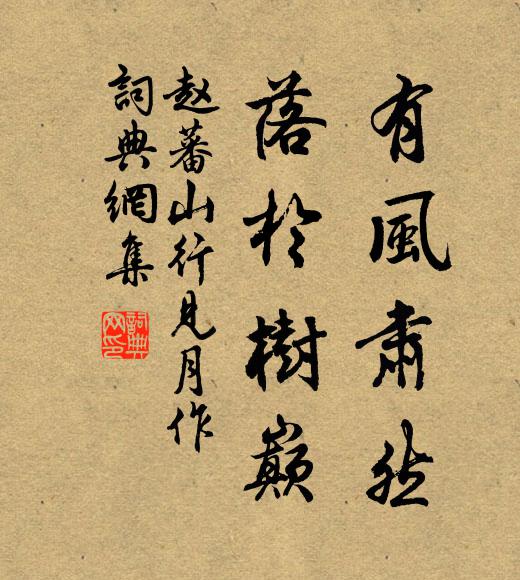 有風肅然
落於樹巔
赵蕃山行見月作
詞典網集
詞典
网印